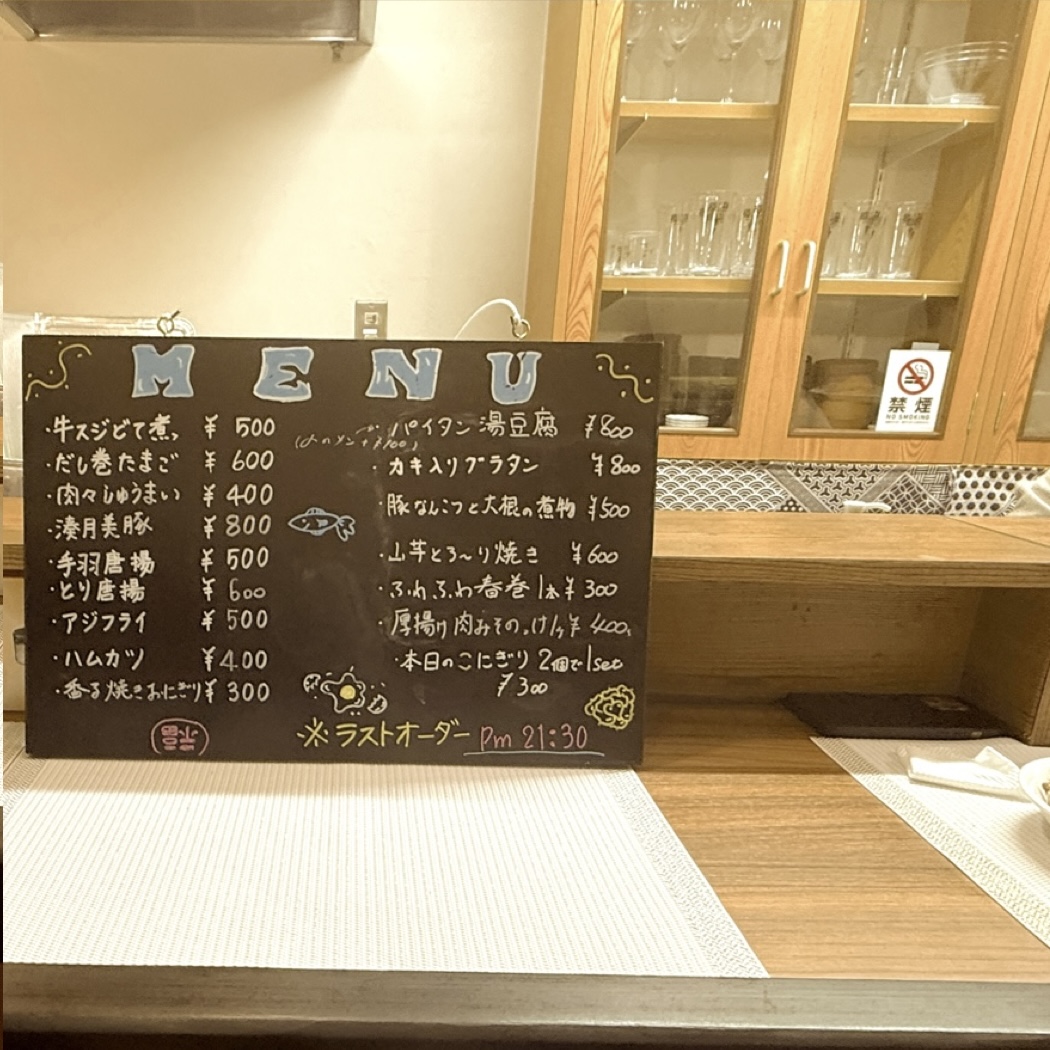 MENU
・牛スジどて煮 ¥500
・だし巻たまご ¥600
・肉々しゅうまい ¥400
・湊月美豚 ¥800
・手羽唐揚 ¥500
・とり唐揚 ¥600
・アジフライ ¥500
・ハムカツ ¥400
・香る焼きおにぎり ¥300
・パイタン湯豆腐 ¥800
・カキ入りグラタン ¥800
・豚なんこつと大根の煮物 ¥500
・山芋とろ〜り焼き ¥600
・ふわふわ春巻1本 ¥300
・厚揚げ肉みそ ¥400
・本日のこにぎり 2個で1set
¥300
※ラストオーダー Pm 21:30
禁煙
NO SMOKING